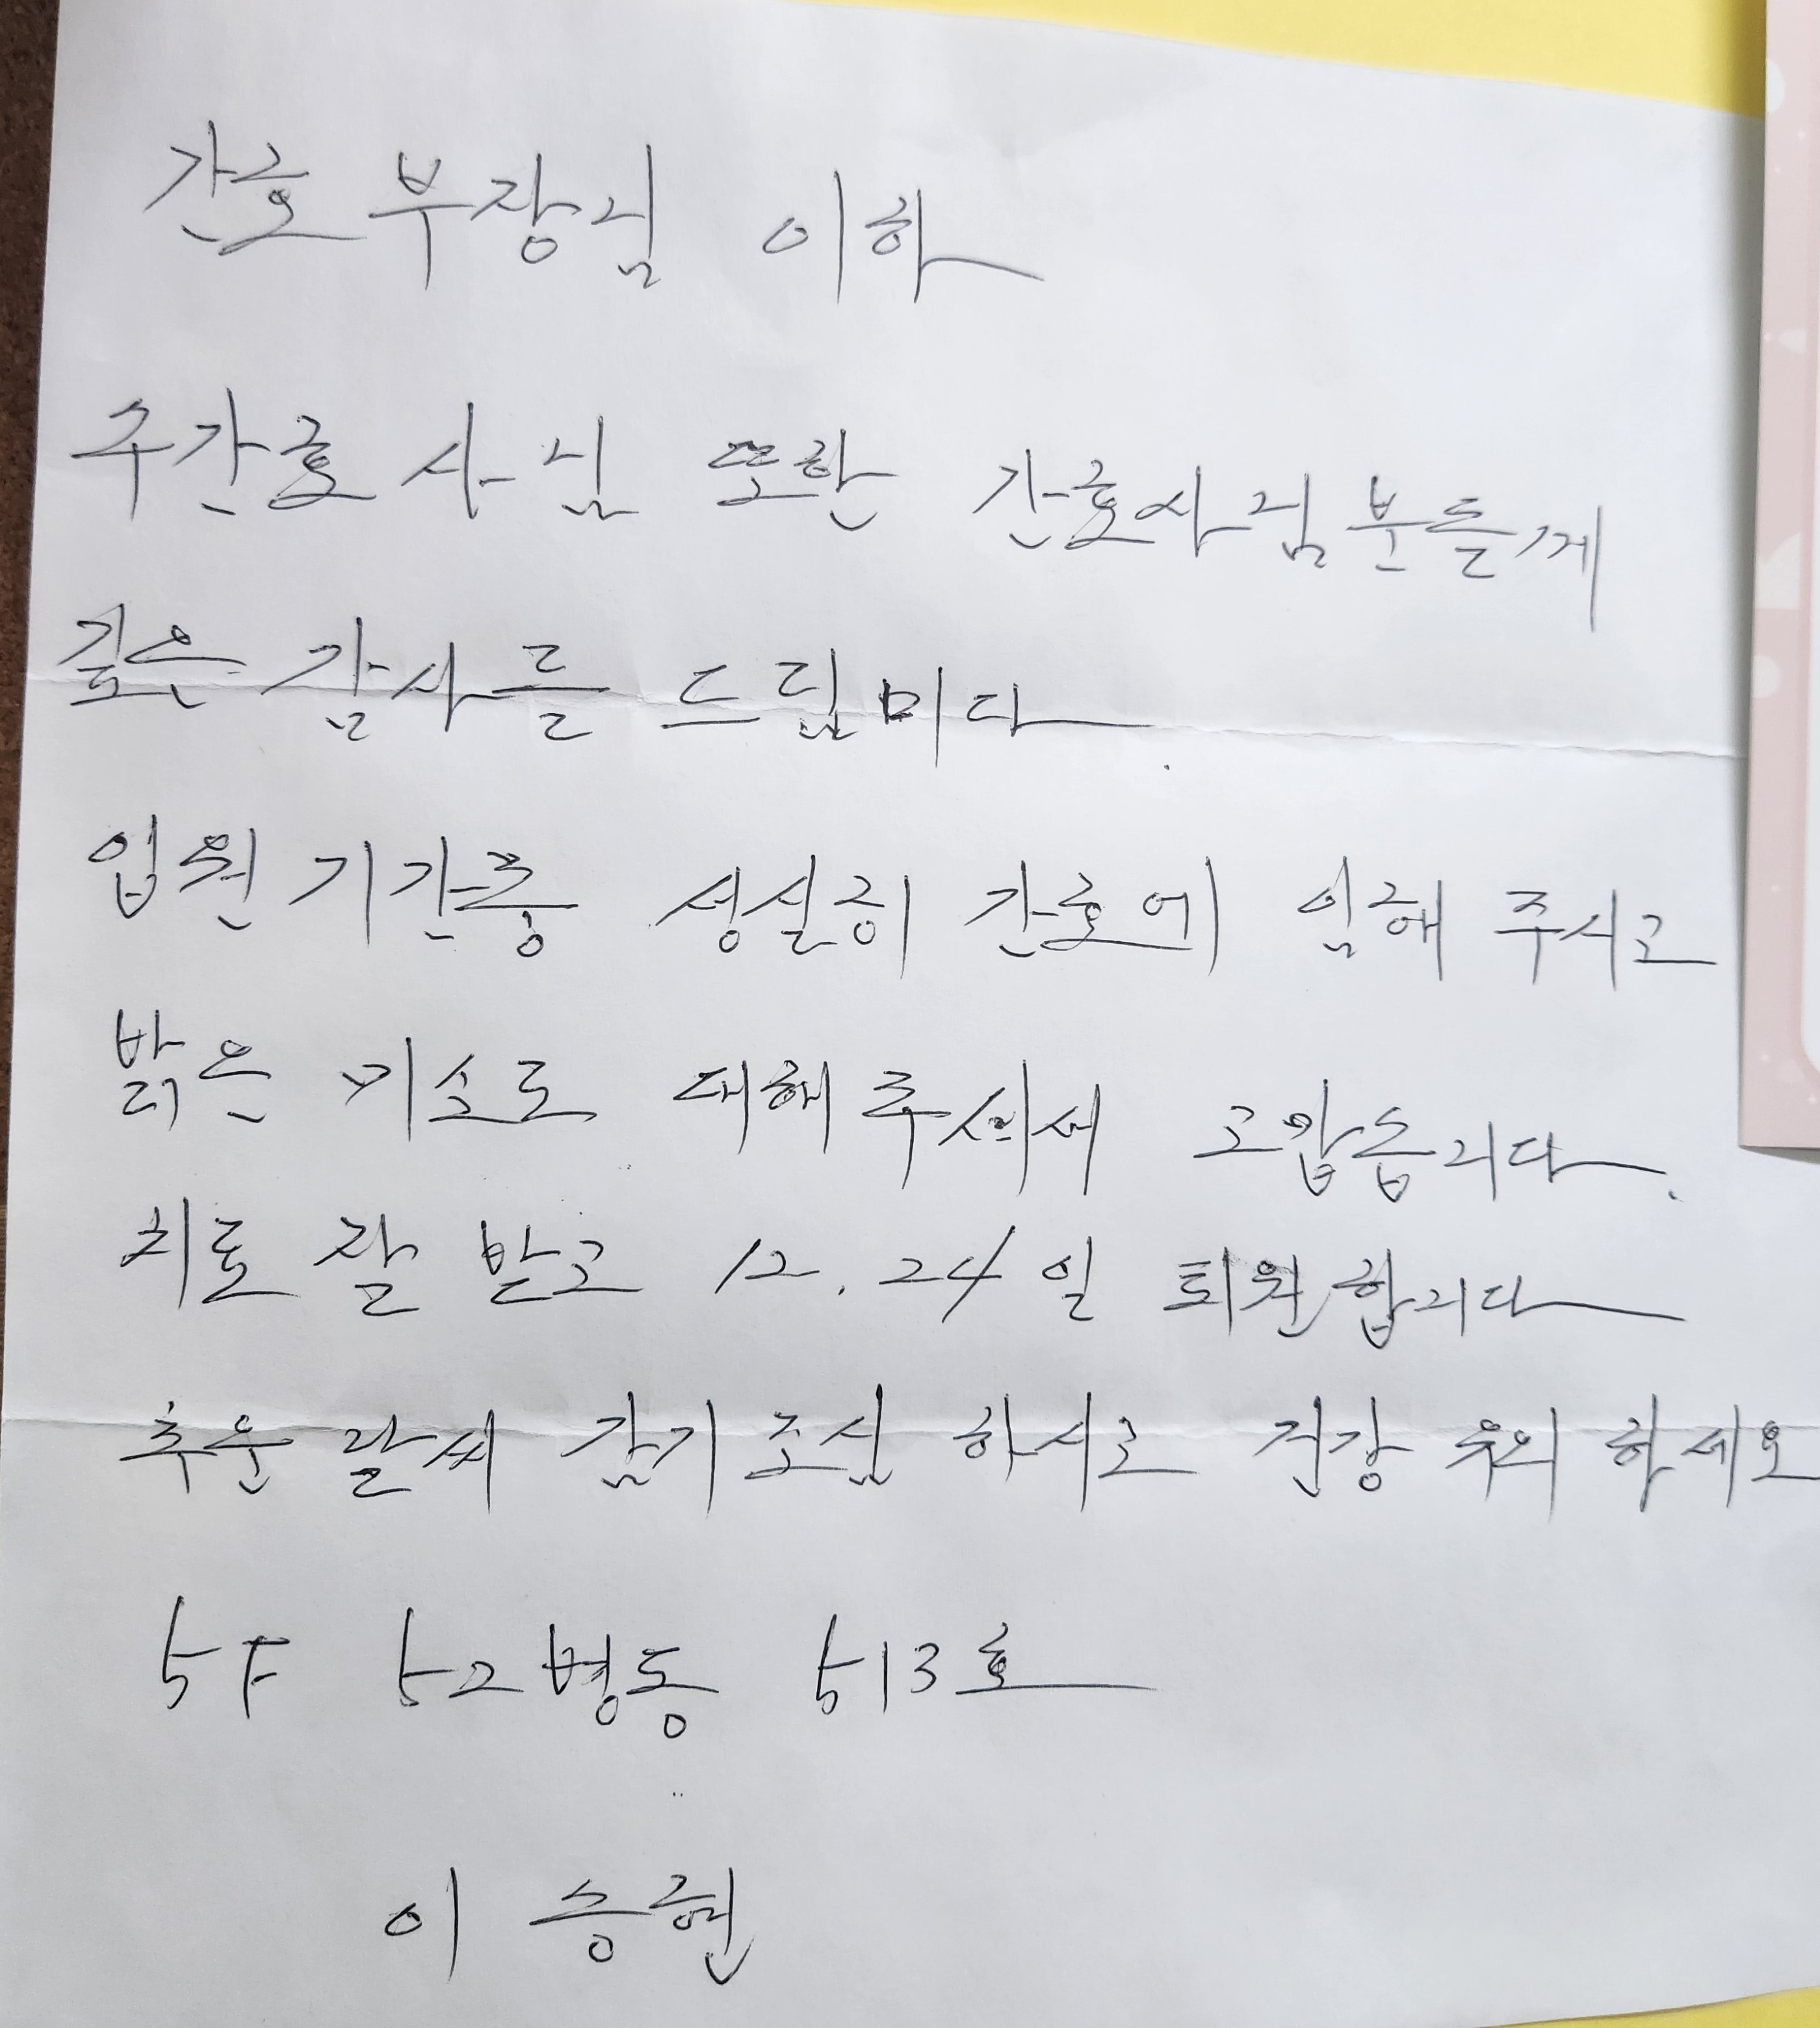 간호 부장님 이하
수간호사님 또한 간호사님분들께
깊은 감사를 드립미다.
입원 기간중 성실히 간호에 임해 주시고
밝은 미소로 대해 주셔서 고맙습니다.
치료 잘 받고 12.24일 퇴원합니다
추운 날씨 감기조심 하시고 건강 유의 하세요
5F 52병동 513호
이 승현